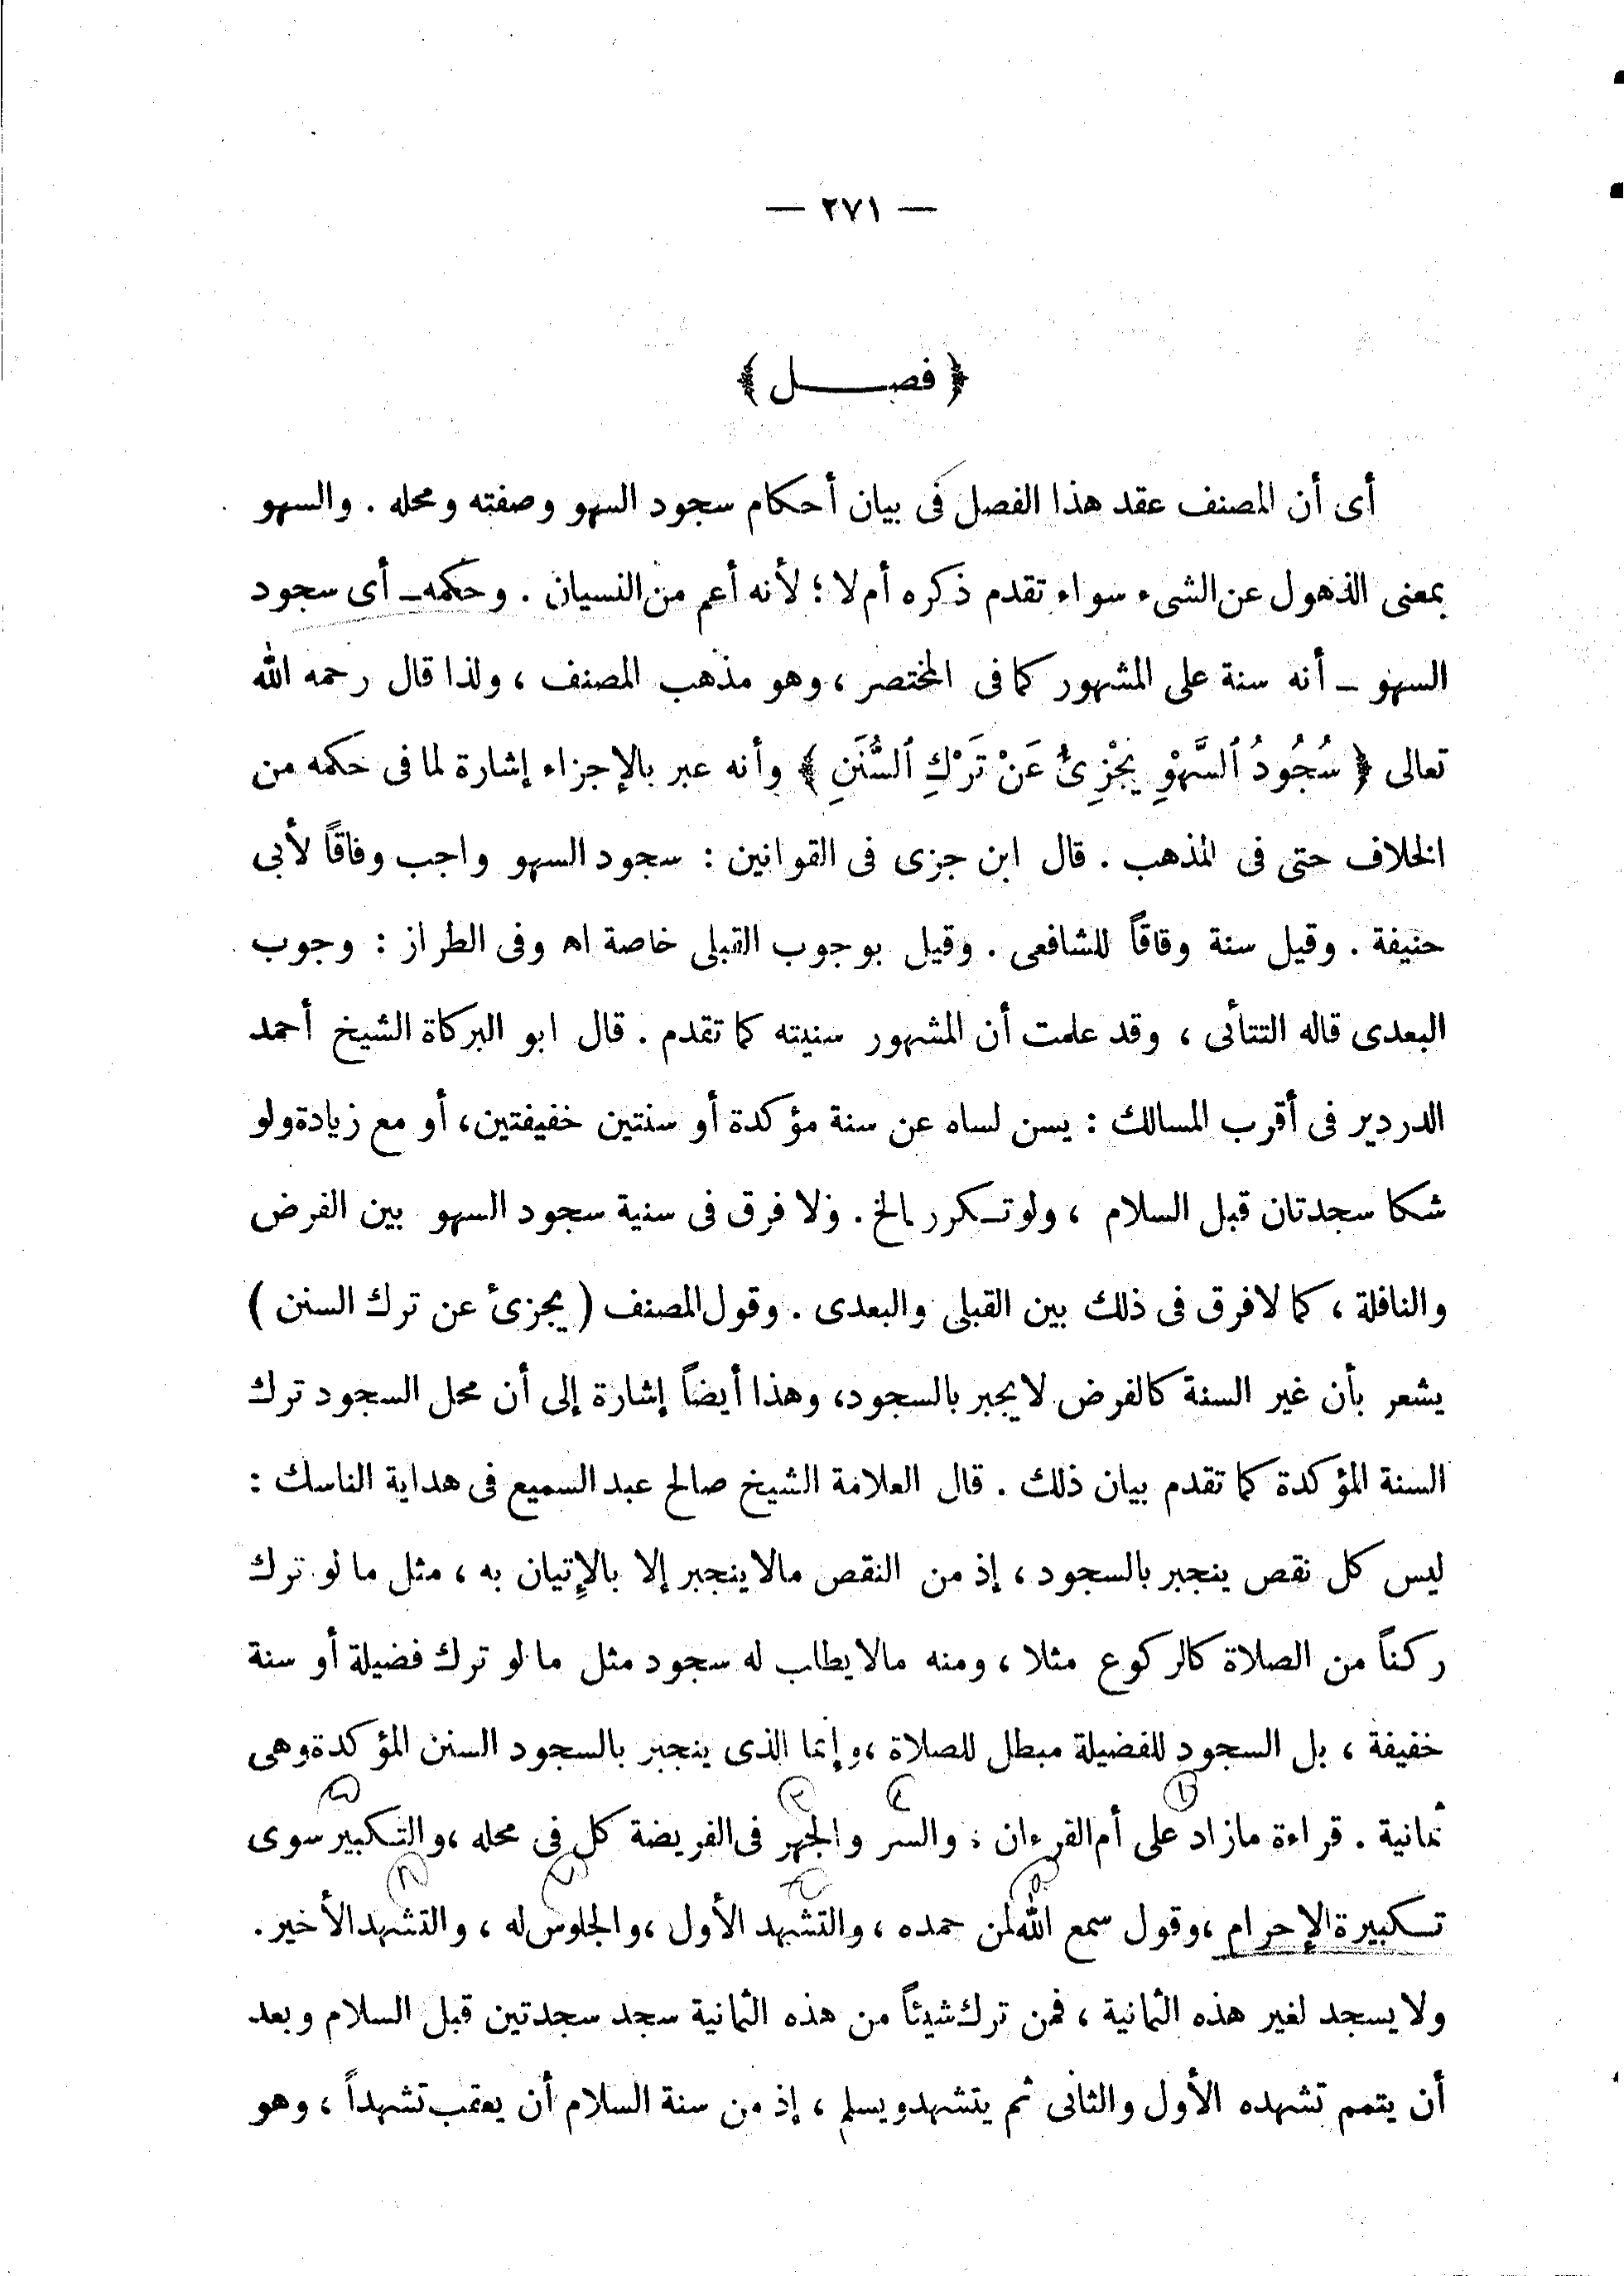 — ٢٧١ —
﴿ فصـــــل ﴾
أى أن المصنف عقد هذا الفصل فى بيان أحكام سجود السهو وصفته ومحله . والسهو
بمعنى الذهول عن الشىء سواء تقدم ذكره أم لا ؛ لأنه أعم من النسيان . وحكمه ــ أى سجود
السهو ــ أنه سنة على المشهور كما فى المختصر ، وهو مذهب المصنف ، ولذا قال رحمه الله
تعالى ﴿ سُجُودُ ٱلسَّهْوِ يُجْزِئُ عَنْ تَرْكِ ٱلسُّنَنِ ﴾ وأنه عبر بالإجزاء إشارة لما فى حكمه من
الخلاف حتى فى المذهب . قال ابن جزى فى القوانين : سجود السهو واجب وفاقاً لأبى
حنيفة . وقيل سنة وقاقاً للشافعى . وقيل بوجوب القبلى خاصة اه وفى الطراز : وجوب
البعدى قاله التتأئى ، وقد علمت أن المشهور سنيته كما تقدم . قال ابو البركاة الشيخ أحمد
الدردير فى أقرب المسالك : يسن لساه عن سنة مؤكدة أو سنتين خفيفتين، أو مع زيادة ولو
شكا سجدتان قبل السلام ، ولو تـكرر الخ . ولا فرق فى سنية سجود السهو بين الفرض
والنافلة ، كما لا فرق فى ذلك بين القبلى والبعدى . وقول المصنف ( يجزئ عن ترك السنن )
يشعر بأن غير السنة كالفرض لا يجبر بالسجود، وهذا أيضاً إشارة إلى أن محل السجود ترك
السنة المؤكدة كما تقدم بيان ذلك . قال العلامة الشيخ صالح عبد السميع فى هداية الناسك :
ليس كل نقص ينجبر بالسجود ، إذ من النقص مالا ينجبر إلا بالإتيان به ، مثل ما لو ترك
ركناً من الصلاة كالركوع مثلا ، ومنه مالا يطلب له سجود مثل ما لو ترك فضيلة أو سنة
خفيفة ، بل السجود للفضيلة مبطل للصلاة ، وإنما الذى ينجبر بالسجود السنن المؤكدة وهى
ثمانية . قراءة مازاد على أم القرءان : والسر والجهر فى الفريضة كل فى محله ، والتـكبير سوى
تـكبيرة الإحرام ، وقول سمع الله لمن حمده ، والتشهد الأول ، والجلوس له ، والتشهد الأخير .
ولا يسجد لغير هذه الثمانية ، فمن ترك شيئاً من هذه الثمانية سجد سجدتين قبل السلام وبعد
أن يتمم تشهده الأول والثانى ثم يتشهد ويسلم ، إذ من سنة السلام أن يعقب تشهداً ، وهو